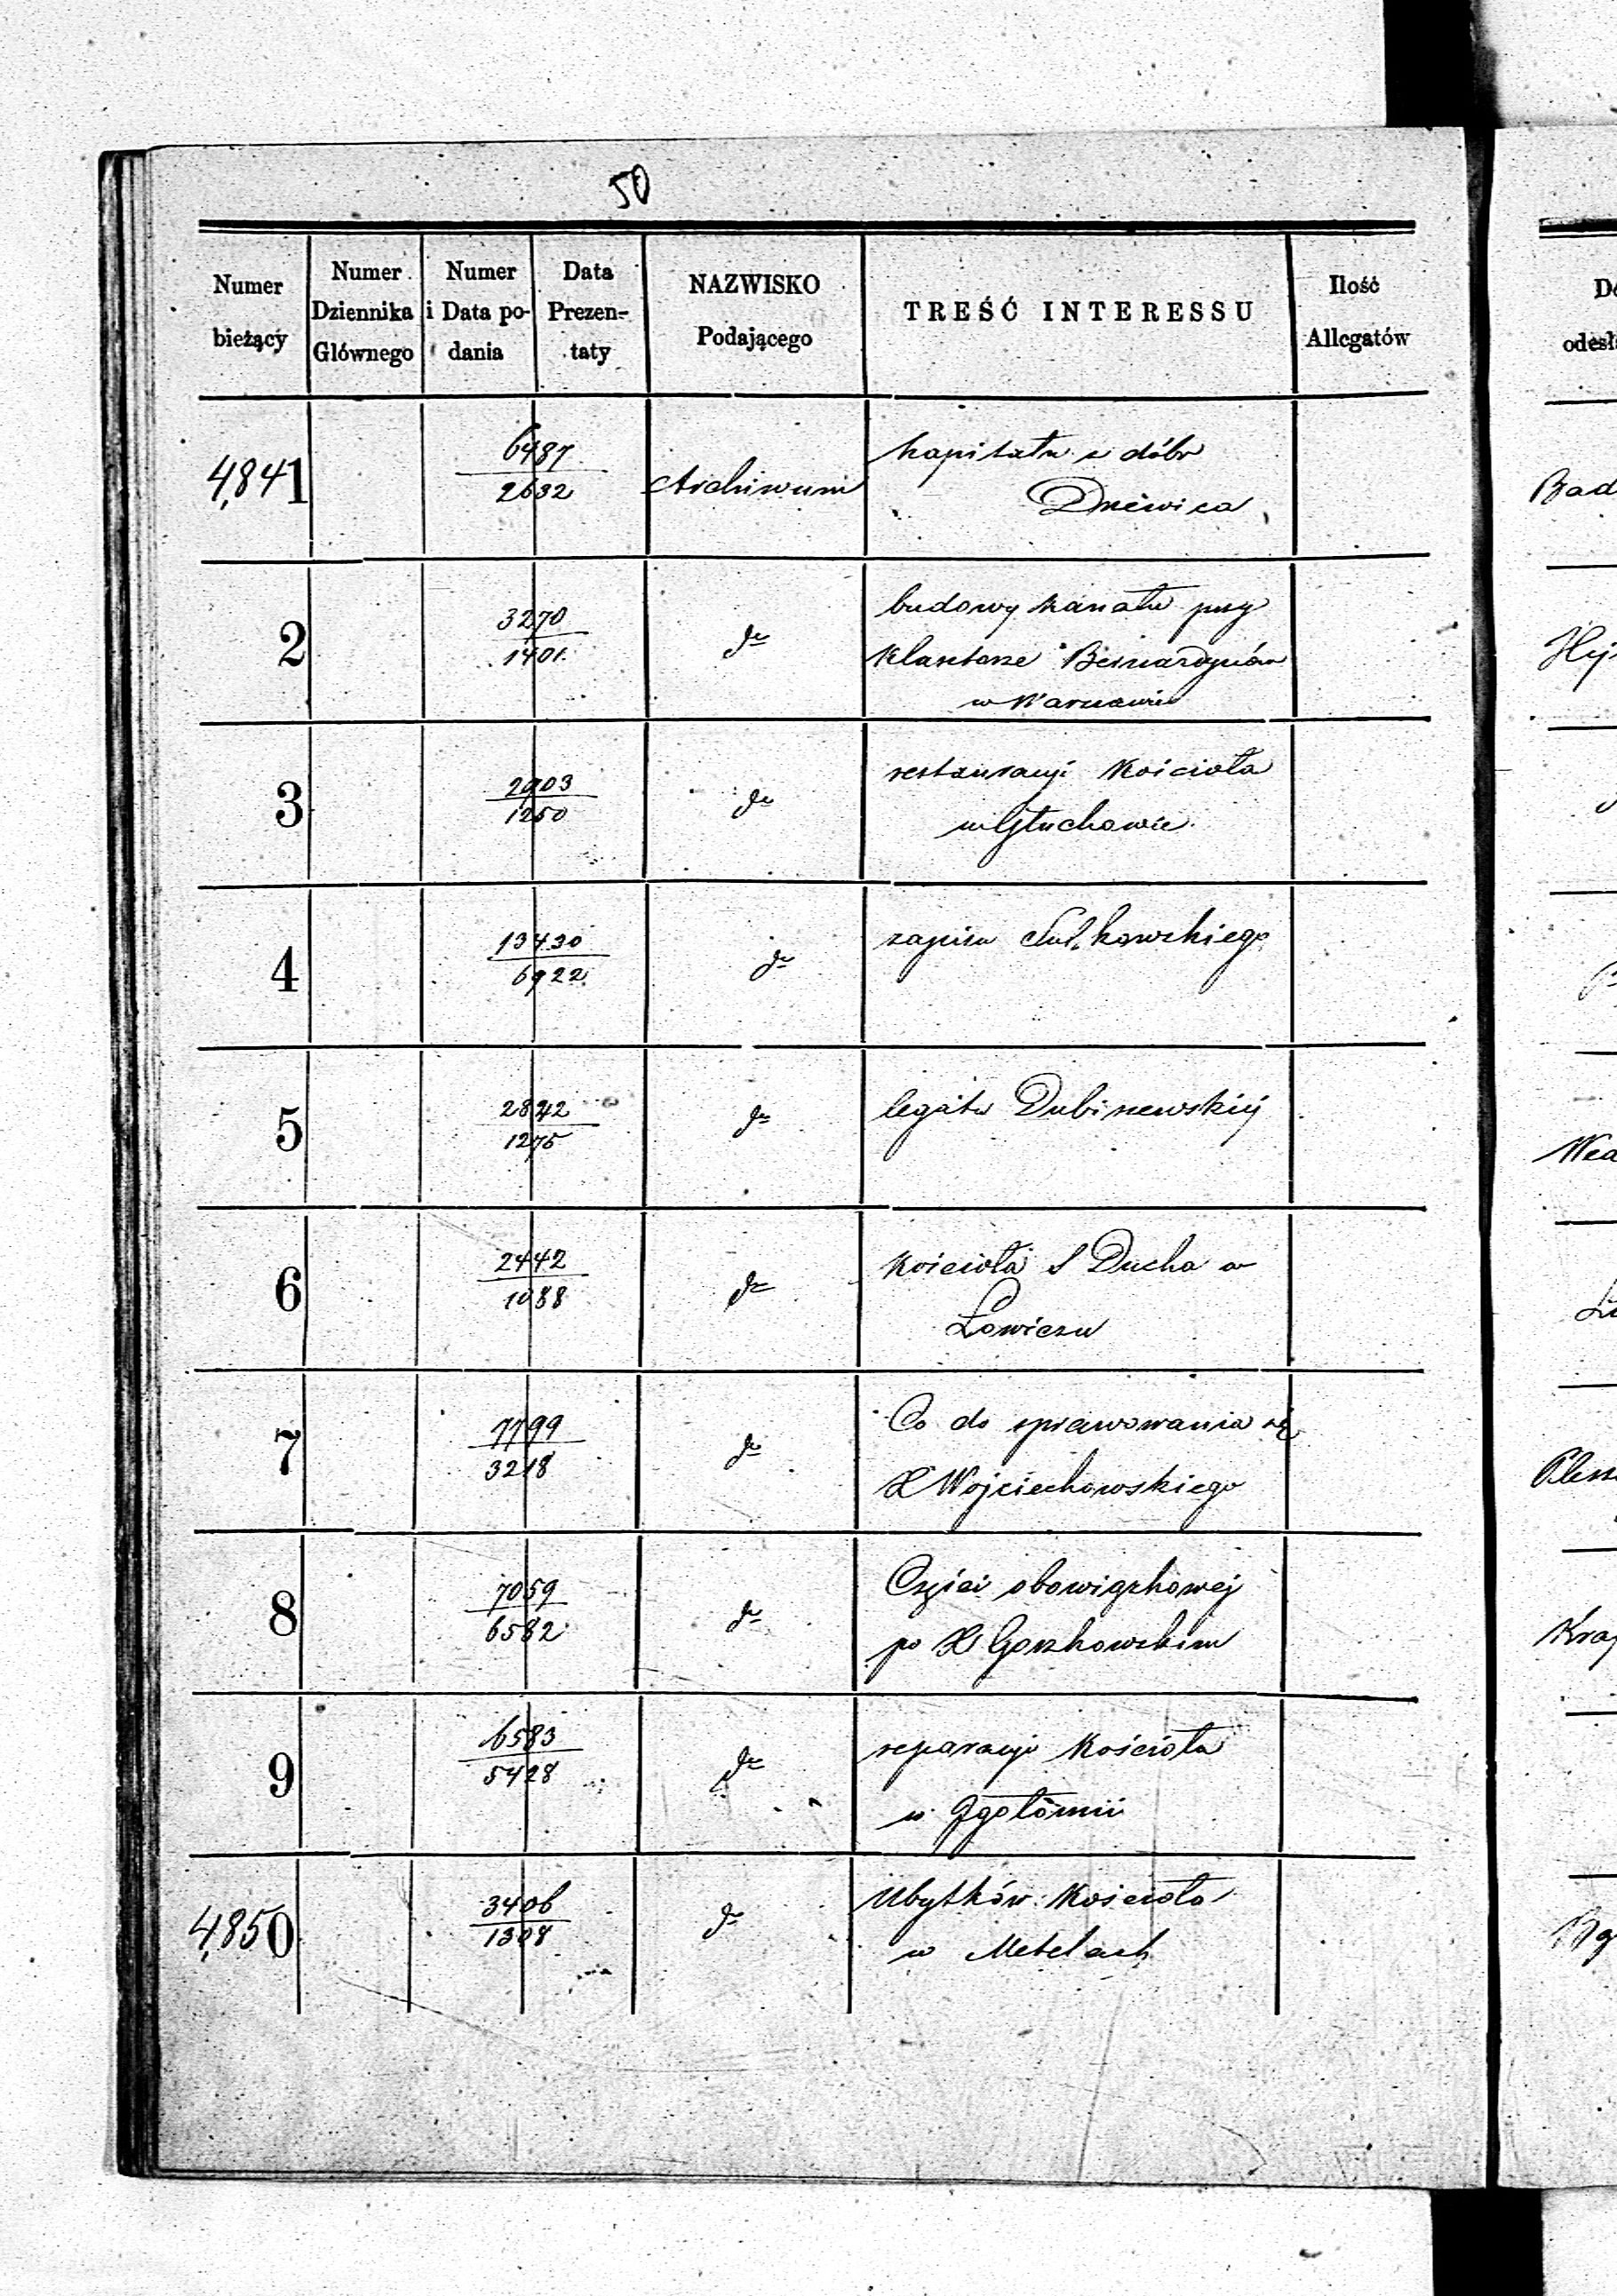 50
Numer bieżący
Numer Dziennika Głównego
Numer i Data podania
Data Prezentaty
NAZWISKO Podającego
TREŚĆ INTERESSU
Ilość Allegatów
4,841
6487
2632
Archiwum
kapitału z dóbr
Drzewica
2
3270
1401
do
budowy kanału przy
klasztorze Bernardynów
w Warszawie
3
2903
1250
do
restauracyi Kościoła
w Głuchowie
4
13430
6922
do
zapisu Sułkowskiego
5
2842
1275
do
legatu Dubiszewskiej
6
2442
1088
do
Kościoła S Ducha w
Łowiczu
7
7799
3218
do
Co do sprawowania się
X Wojciechowskiego
8
7059
6582
do
Części obowiązkowej
po X Gorzkowskim
9
6583
5428
do
reparacyi Kościoła
w Igołomii
4,850
3406
1308
do
Ubytków Kościoła
w Metelach